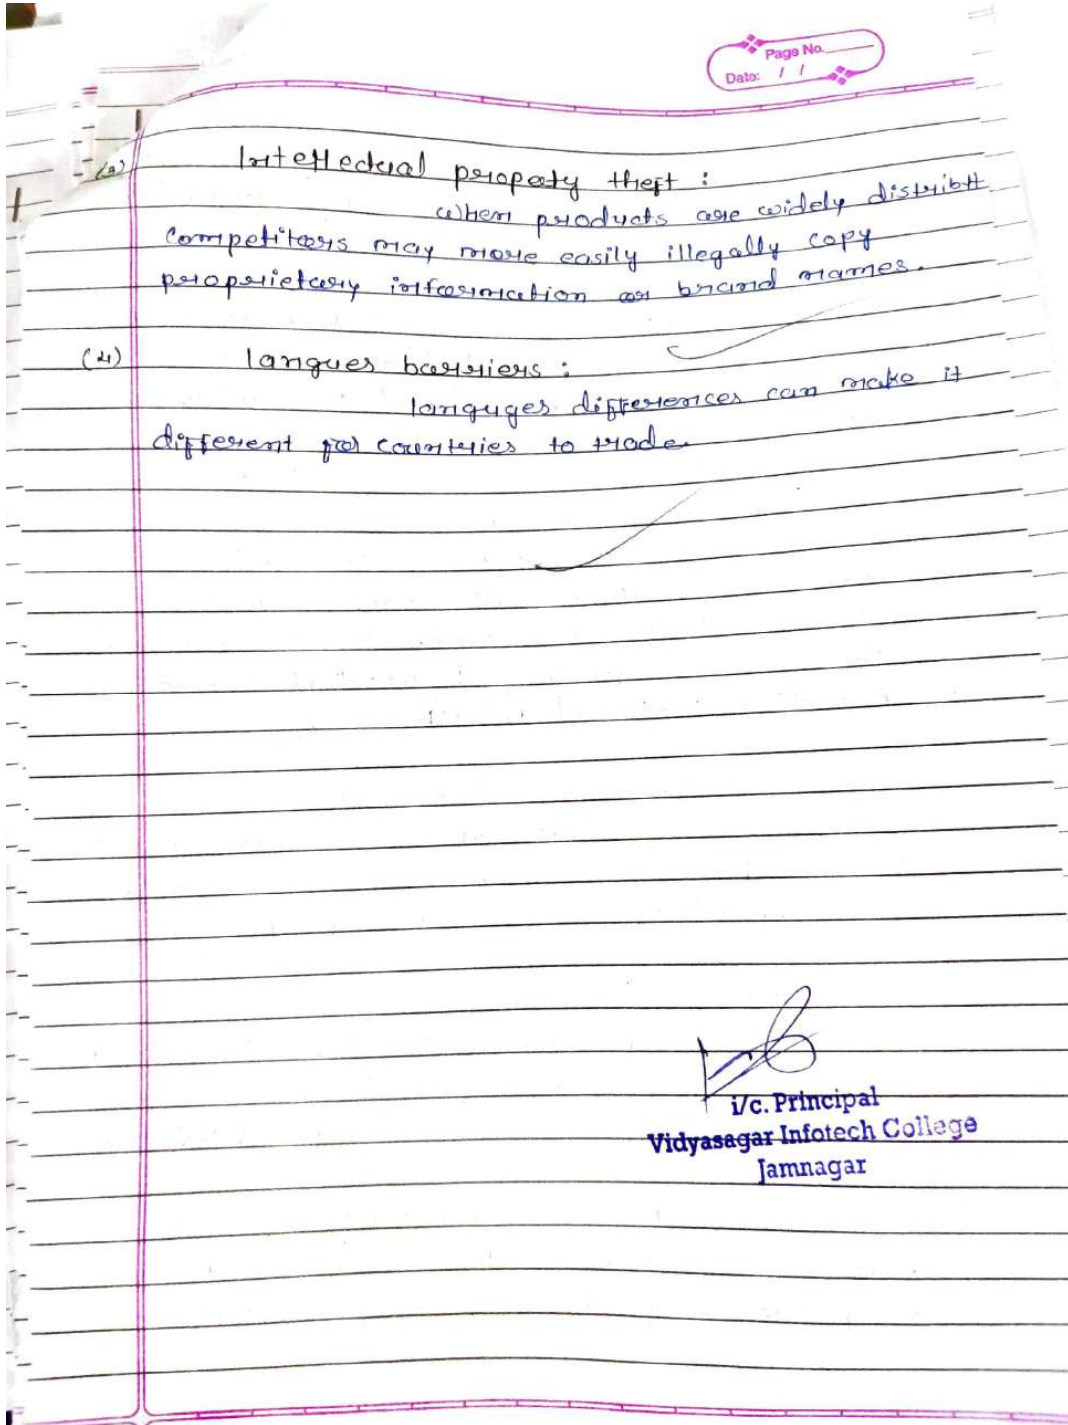 Page No.
Date: / /
(3) Intellectual property theft :
When products are widely distribtt
Competitors may more easily illegally copy
proprietary information or brand names.
(4) langues barriers :
languges differences can make it
different for countries to trade.
i/c. Principal
Vidyasagar Infotech College
Jamnagar